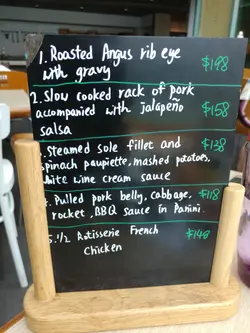 1. Roasted Angus rib eye $198
with gravy
2. Slow cooked rack of pork
accompanied with jalapeño $158
salsa
. Steamed sole fillet and $138
spinach paupiette, mashed potatoes,
white wine cream sauce
. Pulled pork belly, cabbage, $118
rocket, BBQ sauce in Panini.
5. 1/2 Rotisserie French $148
Chicken